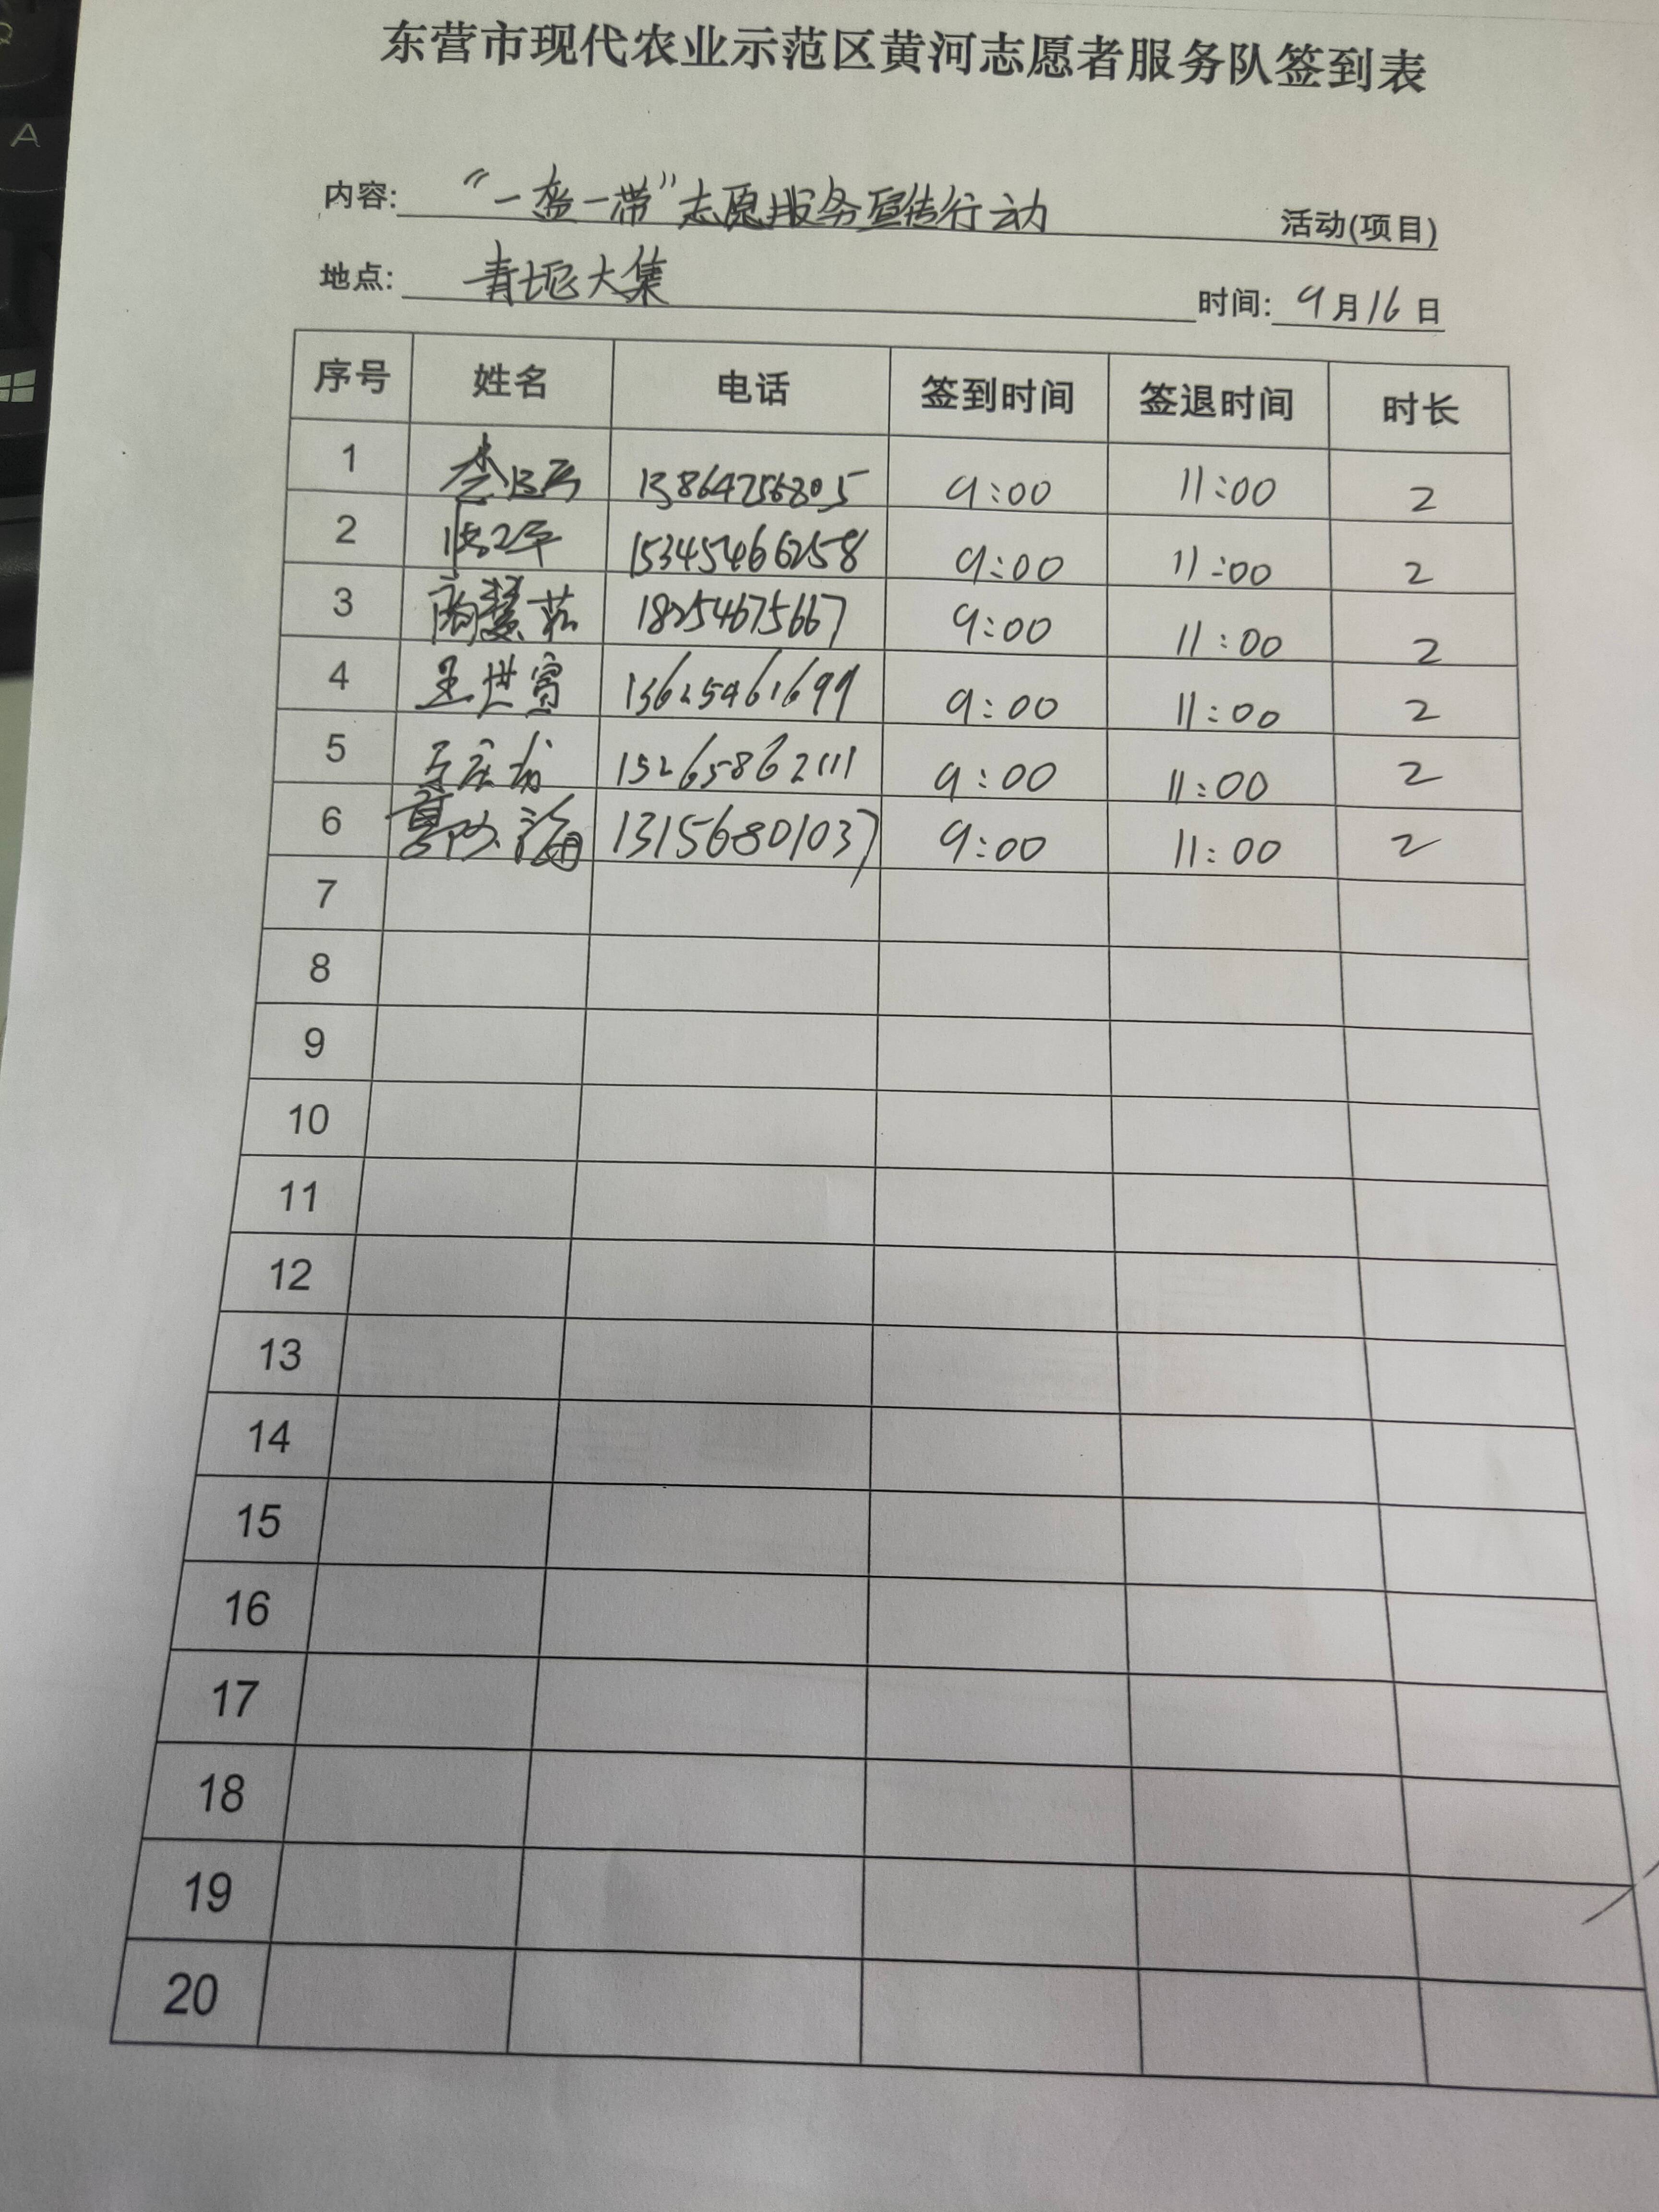 东营市现代农业示范区黄河志愿者服务队签到表
内容: “一盔一带”志愿服务宣传行动 活动(项目)
地点: 青坨大集 时间: 9月16日
序号 姓名 电话 签到时间 签退时间 时长
1 13864756805 9:00 11:00 2
2 15345466258 9:00 11:00 2
3 18254675667 9:00 11:00 2
4 王世宾 13625461699 9:00 11:00 2
5 15265862111 9:00 11:00 2
6 13156801037 9:00 11:00 2
7
8
9
10
11
12
13
14
15
16
17
18
19
20